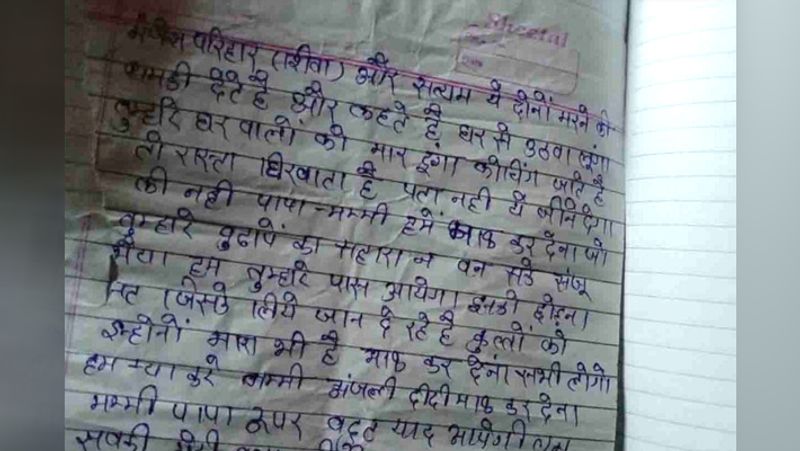 Sheetal
परिहार (शिवा) और सत्यम ये दोनों मरने की
धमकी देते है और कहते है घर से उठवा लूंगा
तुम्हारे घर वालों को मार दूंगा कोचिंग जाते है
तो रास्ता घिरवाता है पता नही ये जीने देगा
की नही पापा-मम्मी हमें माफ कर देना जो
तुम्हारे बुढापे का सहारा न बन सके संजू
भैया हम तुम्हारे पास आयेगा इनको छोड़ना
जिसके लिये जान दे रहे है कुत्तों को
इन्होनों मारा भी है माफ कर देना सभी लोगो
हम क्या करे मम्मी अंजली दीदी माफ कर देना
मम्मी पापा रूपर बहुत याद आयेगी
सबकी मेरी